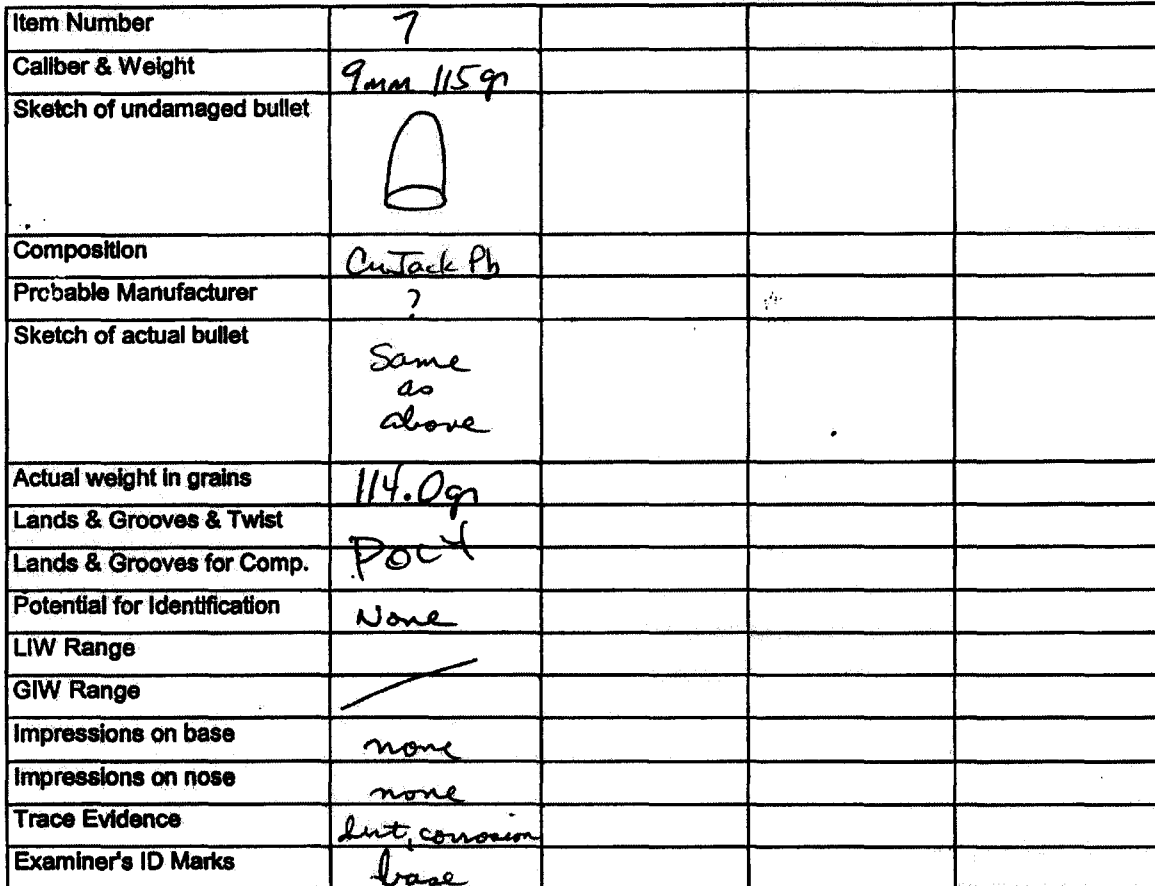 Item Number 7
Caliber & Weight 9mm 115gr
Sketch of undamaged bullet
Composition CuJack Pb
Probable Manufacturer ?
Sketch of actual bullet Same
as
above
Actual weight in grains 114.0gr
Lands & Grooves & Twist
POLY
Lands & Grooves for Comp.
Potential for Identification None
LIW Range
GIW Range
Impressions on base none
Impressions on nose none
Trace Evidence dirt, corrosion
Examiner's ID Marks base